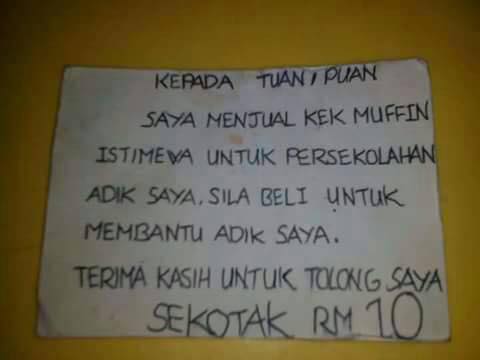 KEPADA TUAN/PUAN
SAYA MENJUAL KEK MUFFIN
ISTIMEWA UNTUK PERSEKOLAHAN
ADIK SAYA. SILA BELI UNTUK
MEMBANTU ADIK SAYA.
TERIMA KASIH UNTUK TOLONG SAYA
SEKOTAK RM 10